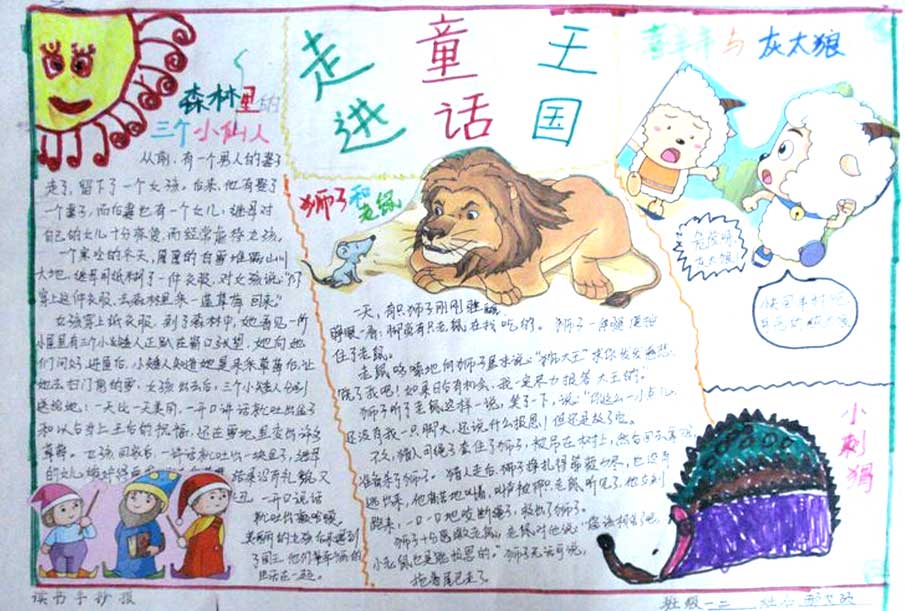 走进
童话
王国
森林里的
三个小仙人
从前,有一个男人的妻子
走了,留下了一个女孩。后来,他有娶了
一个妻子,而后妻也有一个女儿;继母对
自己的女儿十分疼爱,而经常虐待女孩。
一个寒冷的冬天,厚厚的白雪堆满山川
大地。继母用纸糊了一件衣服,对女孩说:“你
穿上这件衣服,去森林里采一篮草莓回来。”
女孩穿上纸衣服,到了森林中,她看见一所
小屋里有三个小矮人正趴在窗口张望,她向他
们问好进屋后,小矮人知道她是来采草莓后,让
她去扫门前的雪,女孩出去后,三个小矮人分别
送给她:一天比一天美丽,一开口讲话就吐出金子
和以后当上王后的祝福,还在雪地里变出许多
草莓。女孩回家后,一讲话就吐出一块金子,继母
的女儿
结果没有礼貌又
丑 一开口说话
就吐出癞蛤蟆。
美丽的女孩后来遇到
了国王,他们幸福的
生活在一起。
狮子和
老鼠
一天,有只狮子刚刚睡醒,
睁眼一看,脚旁有只老鼠在找吃的。狮子一伸腿便拍
住了老鼠。
老鼠哆嗦地向狮子哀求说:“狮大王,求你发发慈悲,
饶了我吧!如果日后有机会,我一定尽力报答大王的。”
狮子听了老鼠这样一说,笑了一下,说:“你这么一小点儿,
还没有我一只脚大,还说什么报恩!但还是放了它。
不久,猎人用绳子套住了狮子,
准备杀了狮子。猎人走后,狮子挣扎得筋疲力尽,也没有
逃出来,他痛苦地叫着,老鼠听见了,他立刻
跑来,一口一口地咬断绳子,救出了狮子。
狮子十分感激老鼠,老鼠对他说:
小老鼠也是能报恩的。”狮子无话可说,
拖着尾巴走了。
喜羊羊与灰太狼
小刺猬
读书手抄报
班级 一二 姓名